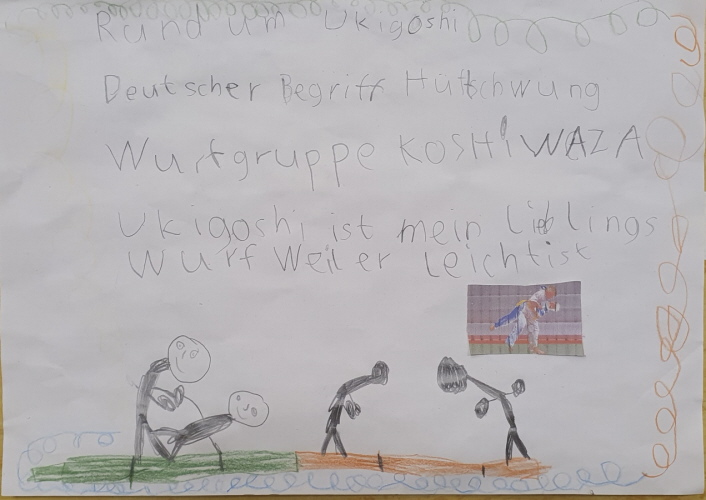 Rund um Ukigoshi
Deutscher Begriff Hüftschwung
Wurfgruppe KOSHiWAZA
Ukigoshi ist mein lieblings
Wurf Weil er leichtist